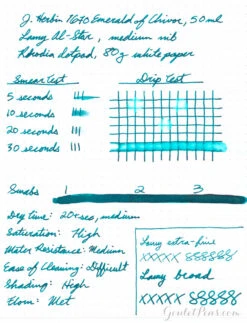 J. Herbin 1670 Emerald of Chivor, 50ml
Lamy Al-Star, medium nib
Rhodia dotpad, 80g white paper
Smear test
Drip test
5 seconds
10 seconds
20 seconds
30 seconds
Swabs 1 2 3
Dry time: 20 sec, medium
Saturation: High
Water Resistance: Medium
Ease of Cleaning: Difficult
Shading: High
Flow: Wet
Lamy extra-fine
xxxxx 888888
Lamy broad
xxxxx 888888
GouletPens.com